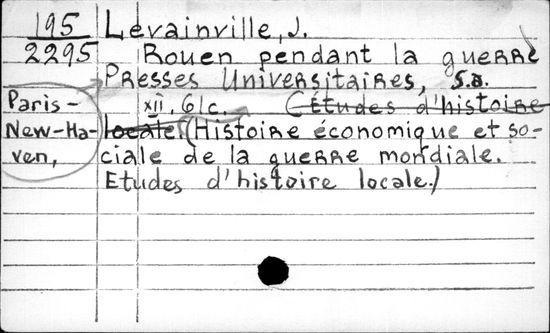 195 Levainville, J.
2295 Rouen pendant la guerre
Presses Universitaires, s.a.
Paris- xii, 61c. (Études d'histoire
New-Ha- locale. (Histoire économique et so-
ven, ciale de la guerre mondiale.
Etudes d'histoire locale.)